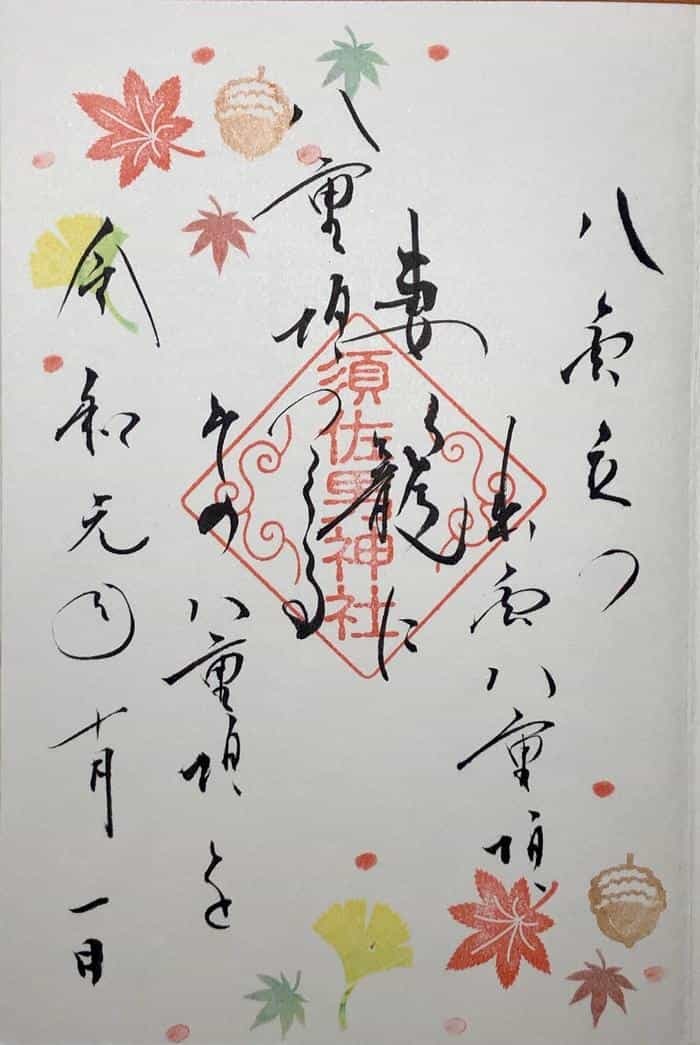 八雲立つ
出雲八重垣
妻籠に
八重垣つくる
その八重垣を
令和元年十月一日
須佐男神社